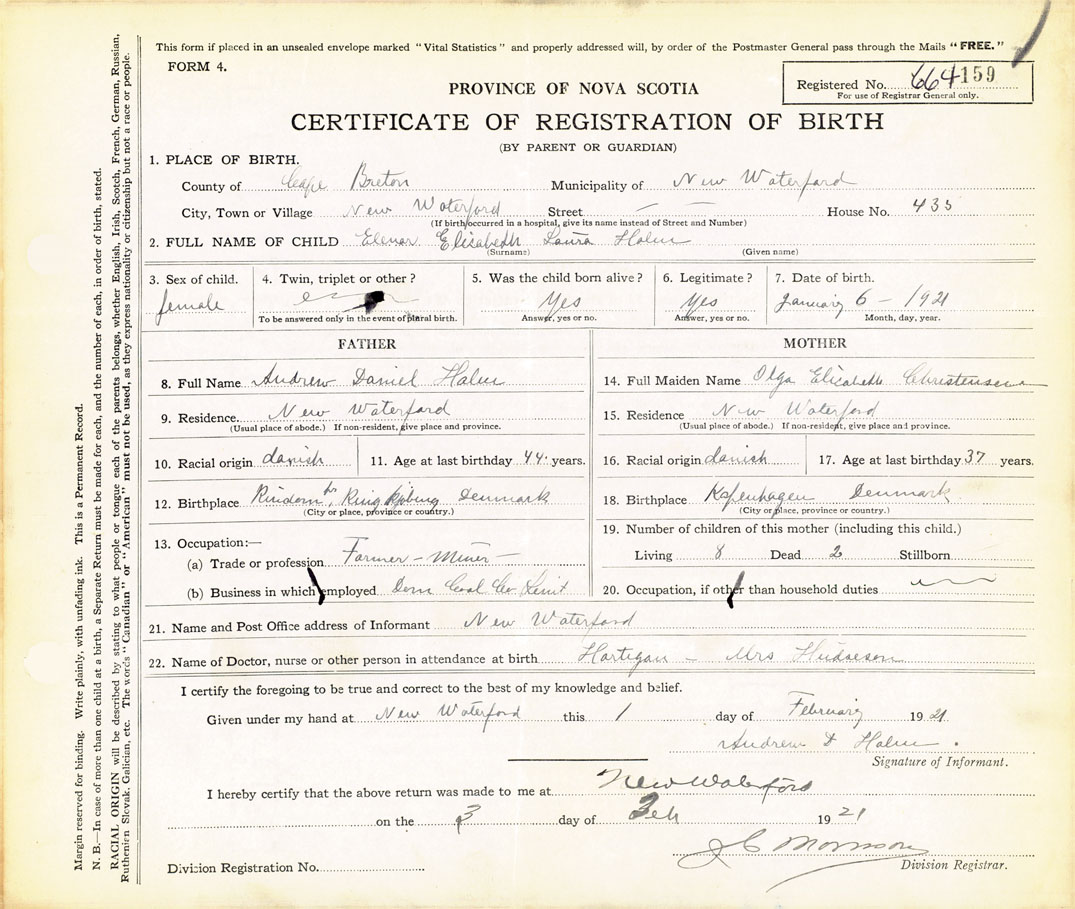 This form if placed in an unsealed envelope marked "Vital Statistics" and properly addressed will, by order of the Postmaster General pass through the Mails "FREE."
FORM 4.
Registered No. 664159
For use of Registrar General only.
PROVINCE OF NOVA SCOTIA
CERTIFICATE OF REGISTRATION OF BIRTH
(BY PARENT OR GUARDIAN)
1. PLACE OF BIRTH.
County of Cape Breton Municipality of New Waterford
City, Town or Village New Waterford Street — — House No. 435
(If birth occurred in a hospital, give its name instead of Street and Number)
2. FULL NAME OF CHILD Elenor Elisabeth Laura Holm
(Surname) (Given name)
3. Sex of child. 4. Twin, triplet or other? 5. Was the child born alive? 6. Legitimate? 7. Date of birth.
female Yes Yes January 6 - 1921
To be answered only in the event of plural birth. Answer, yes or no. Answer, yes or no. Month, day, year.
FATHER MOTHER
8. Full Name Andrew Daniel Holm 14. Full Maiden Name Olga Elisabeth Christensen
9. Residence. New Waterford 15. Residence New Waterford
(Usual place of abode.) If non-resident, give place and province. (Usual place of abode.) If non-resident, give place and province.
10. Racial origin danish 11. Age at last birthday 44 years. 16. Racial origin danish 17. Age at last birthday 37 years.
12. Birthplace Rindom Ringkjobing Denmark 18. Birthplace Kopenhagen Denmark
(City or place, province or country.) (City or place, province or country.)
19. Number of children of this mother (including this child.)
Living 8 Dead 2 Stillborn
13. Occupation:—
(a) Trade or profession Farmer - Miner -
(b) Business in which employed Dom Coal Co Limit 20. Occupation, if other than household duties
21. Name and Post Office address of Informant New Waterford
22. Name of Doctor, nurse or other person in attendance at birth Hartigan - Mrs
I certify the foregoing to be true and correct to the best of my knowledge and belief.
Given under my hand at New Waterford this 1 day of February 19 21.
Andrew D Holm.
Signature of Informant.
I hereby certify that the above return was made to me at New Waterford
on the 3 day of Feb 19 21
J C Morrison
Division Registration No. Division Registrar.
Margin reserved for binding. Write plainly, with unfading ink. This is a Permanent Record.
N. B.—In case of more than one child at a birth, a Separate Return must be made for each, and the number of each, in order of birth, stated.
RACIAL ORIGIN will be described by stating to what people or tongue each of the parents belongs, whether English, Irish, Scotch, French, German, Russian,
Ruthenien Slovak, Galician, etc. The words "Canadian" or "American" must not be used, as they express nationality or citizenship but not a race or people.